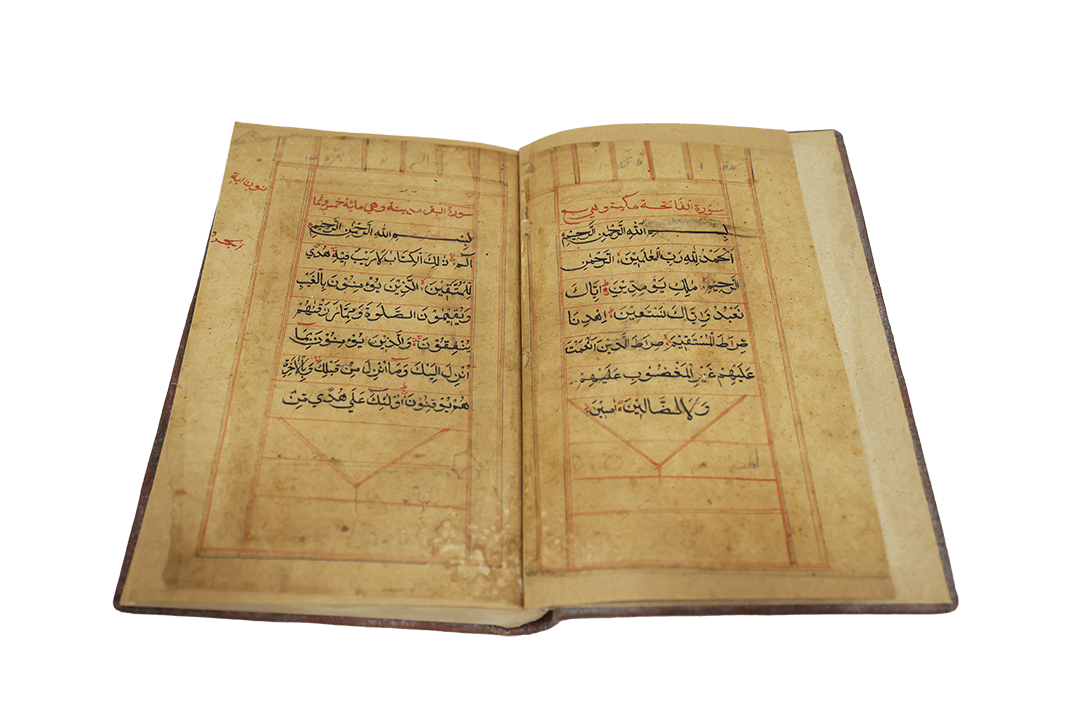 سورة الفاتحة مكية وهي سبع
بِسْــــمِ اللهِ الرَّحْمٰنِ الرَّحِيْمِ
اَلْحَمْدُ لِلّٰهِ رَبِّ الْعٰلَمِيْنَ الرَّحْمٰنِ
الرَّحِيْمِ مٰلِكِ يَوْمِ الدِّيْنِ اِيَّاكَ
نَعْبُدُ وَاِيَّاكَ نَسْتَعِيْنَ اِهْدِنَا
صِرَاطَ الْمُسْتَقِيْمَ صِرَاطَ الَّذِيْنَ اَنْعَمْتَ
عَلَيْهِمْ غَيْرِ الْمَغْضُوْبِ عَلَيْهِمْ
وَلَا الضَّالِّيْنَ اٰمِيْنَ
سورة البقرة مدينة وهي مائة
بِسْــــمِ اللهِ الرَّحْمٰنِ الرَّحِيْمِ
الم ذٰلِكَ الْكِتَابُ لَارَيْبَ فِيْهِ هُدًي
لِلْمُتَّقِيْنَ الَّذِيْنَ يُؤْمِنُوْنَ بِالْغَيْبِ
وَيُقِيْمُوْنَ الصَّلٰوةَ وَمِمَّا رَزَقْنٰهُمْ
يُنْفِقُوْنَ وَالَّذِيْنَ يُؤْمِنُوْنَ بِمَا
اُنْزِلَ اِلَيْكَ وَمَا اُنْزِلَ مِنْ قَبْلِكَ وَبِالْاٰخِرَةِ
هُمْ يُوْقِنُوْنَ اُوْلٰئِكَ عَلٰي هُدًي مِنْ
نون اية